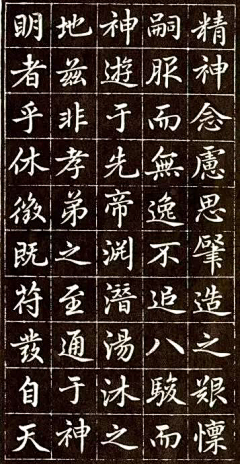 精神念慮思肇造之艱懍
嗣服而無逸不追八駿而
神遊于先帝渊潛湯沐之
地茲非孝弟之至通于神
明者乎休徵既苻發自天